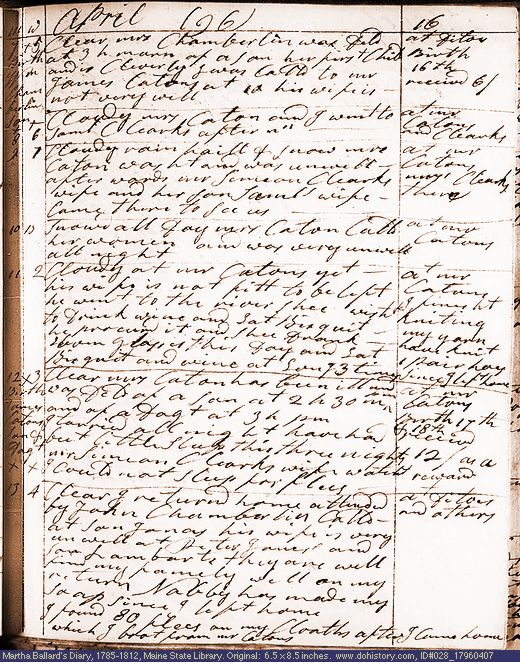 April 1796 16
7 5 Clear mrs Chamberlin was Deld at Ditos
at 3 h morn of a son her first Child Birth
and is Cleverly I was Calld to mr 16th
James Catons at his wife is receivd 6/
not very well
8 6 Clowdy mrs Caton and I went to at mr
Saml Clearks after n Catons
and Clearks
9 7 Clowdy rain haill & snow mrs at mr
Caton washt and was unwell Catons
after wards mr Simeon Clearks mrs Clearks
wife and her son Samll wife there
Came there to See us
10 D Snowd all Day mrs Caton Calld at mr
her women and was very unwell Catons
all night
11 2 Clowdy at mr Catons yet at mr
his wife is not fitt to be left Catons
he went to the river shee wisht I finisht
to Drink wine and Eat Bisquit kniting
he procured it and shee Drank my yarn
Glasses this Day and Eat have knit
Bisquit and wine at 3 times pair hoes
since I left home
12 x 3 Clear mrs Caton has been ill and at mr
Birth was DLD of a son at 2 h 30 m Catons
James and of a Dagt at 3 h pm Birth 17th
Catons I tarried all night have had & 18th
Son & but little sleep this three nights receivd
mrs Simeon Clearks wife watcht 12/ as a
x x I Could not sleep for fleas reward
13 4 Clear I returnd home attended at Ditos
by John Chamberlin Calld and others
at son Jonas his wife is very
unwell at Ditos Jones and
son Lambarts they are well
find my family well on my
return Nabby has made my
soap since I left home
I found 80 fleas on my Cloaths after I came home
which I bot from mr Catons
Martha Ballard's Diary, 1785-1812, Maine State Library. Original: 6.5 x 8.5 inches. www.dohistory.org, ID#028_17960407